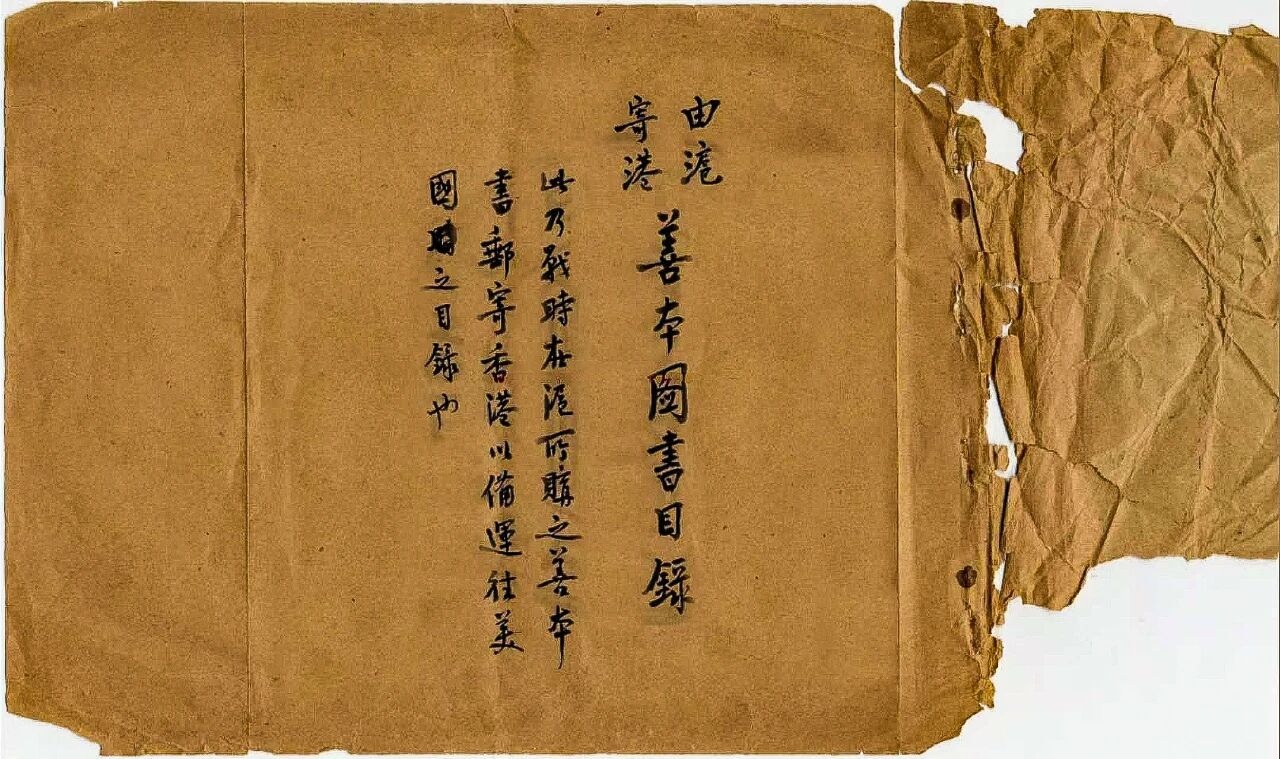 由滬
寄港
善本圖書目錄
此乃戰時在滬所購之善本
書郵寄香港以備運往美
國之目錄也